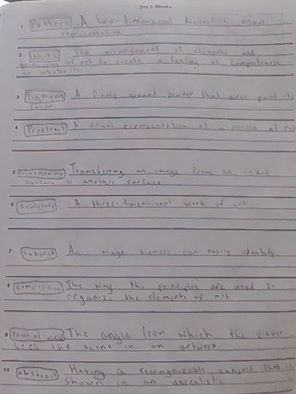 1. Pattern A two-dimensional decorative visual
2. Unity The arrangement of elements and
principles of art to create a feeling of completeness
or wholeness.
3. Pigment A finely ground powder that gives paint its
color.
4. Portrait A visual representation of a person at rest
5. Printmaking Transferring an image from an inked
surface to another surface.
6. Sculpture A three-dimensional work of art
7. Subject An image viewers can easily identify
8. Composition The way the principles are used to
organize the elements of art
9. Point of view The angle from which the viewer
sees the scene in an artwork.
10. abstract Having a recognizable subject that is
shown in an unrealistic